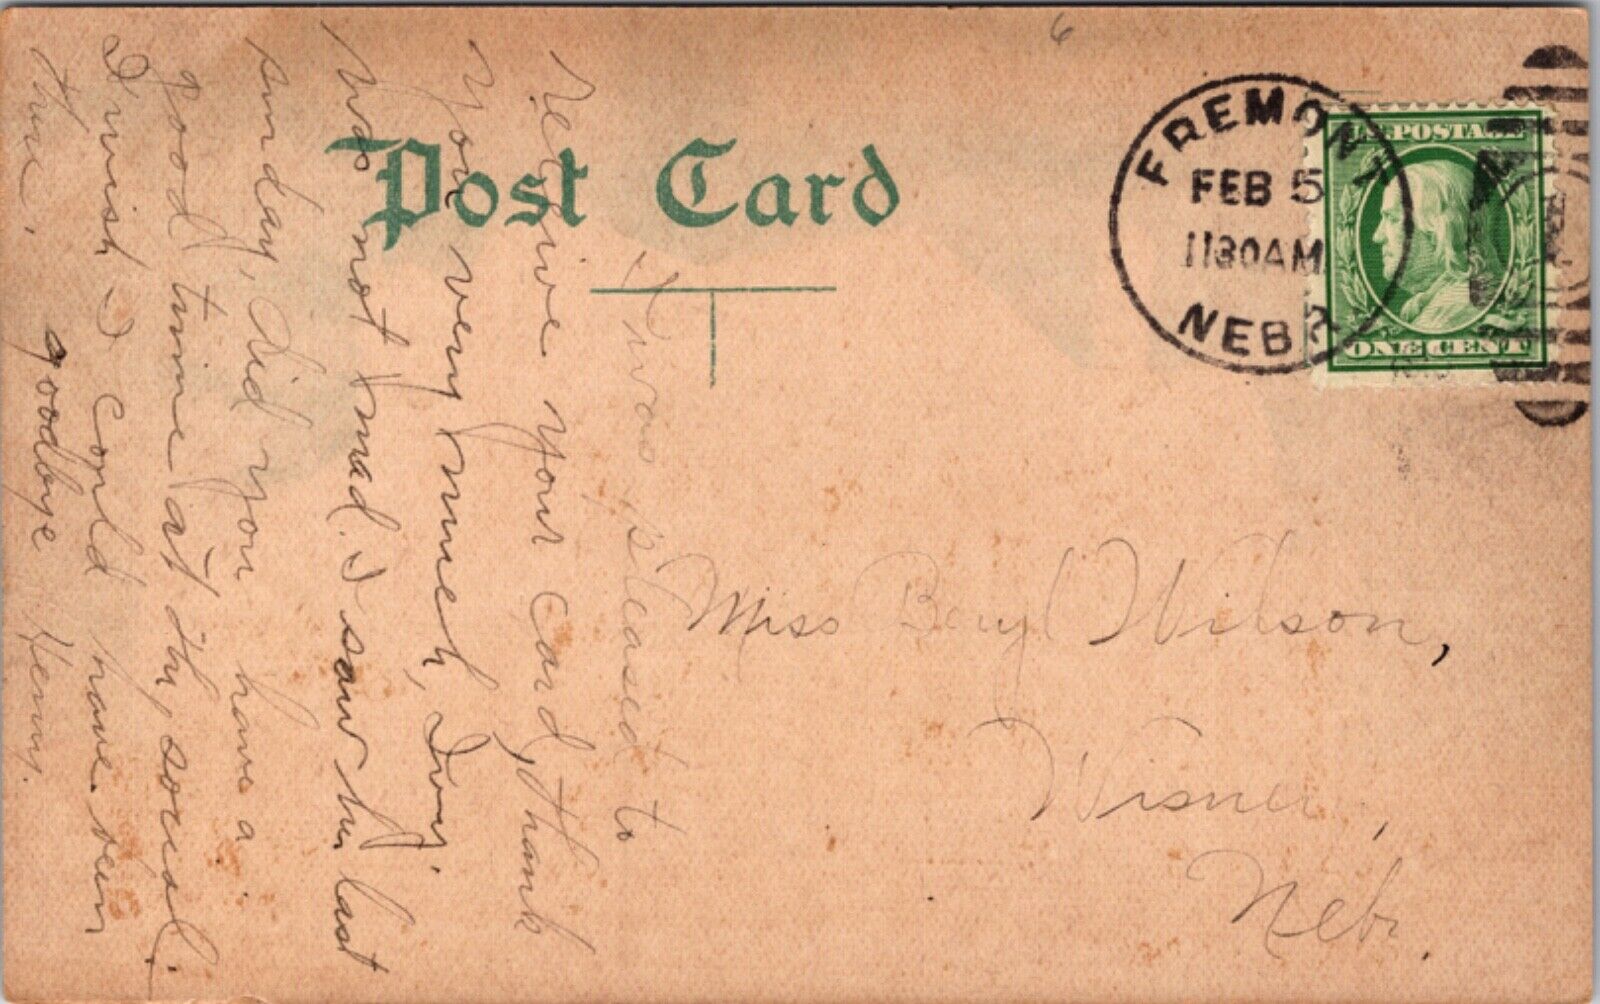 6
Post Card
FREMONT
FEB 5
1130AM
NEBR
U.S. POSTAGE
ONE CENT
I was pleased to
receive your card, thank
you very much, Ivy,
was not mad. I saw her last
sunday, did you have a
good time at thy social.
I wish I conld have been
there.
goodbye Henry.
Miss Beryl Wilson,
Wisner,
Nebr.